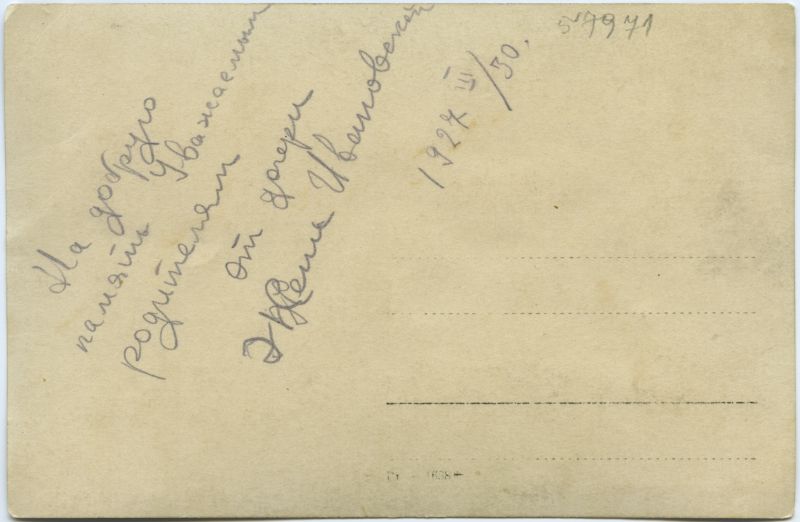 57971
На добрую
память Уважаемым
родителям
от дочери
Жени Ивановской
1927 III/30.